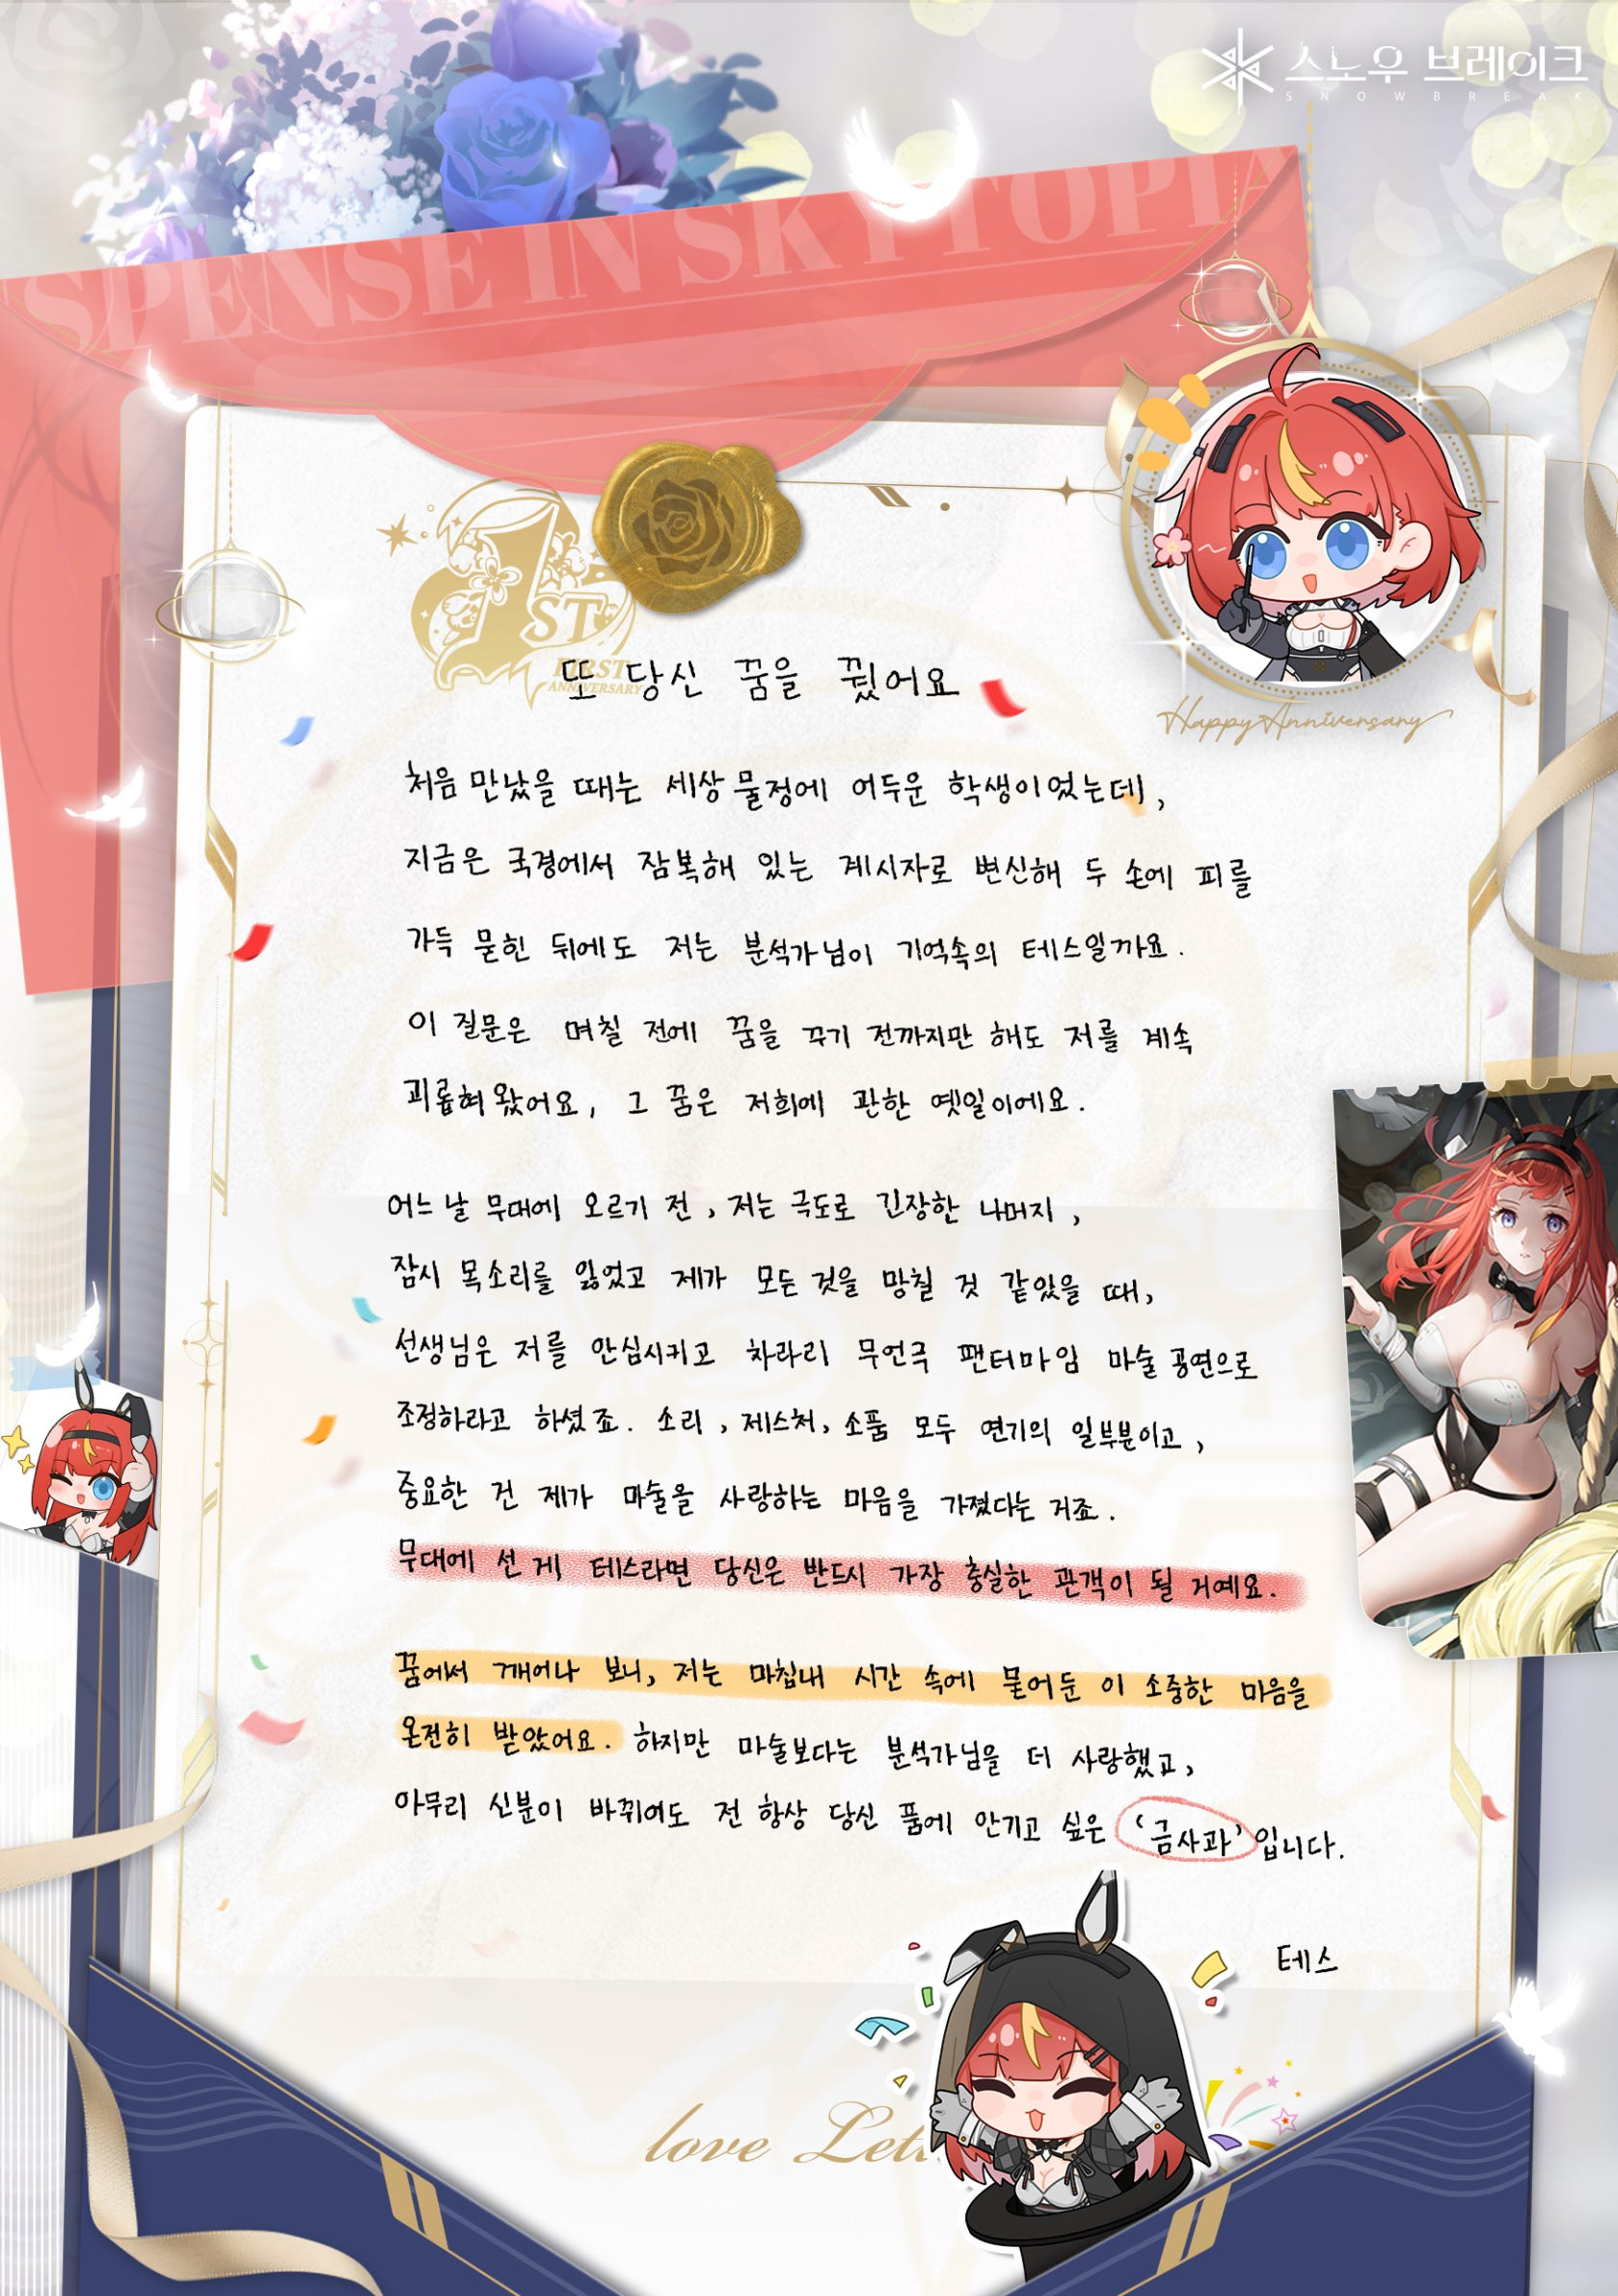 스노우 브레이크
SNOWBREAK
SPENSE IN SKYTOPIA
1ST
FIRST
ANNIVERSARY
Happy Anniversary
또 당신 꿈을 꿨어요
처음 만났을 때는 세상 물정에 어두운 학생이었는데,
지금은 국경에서 잠복해 있는 계시자로 변신해 두 손에 피를
가득 묻힌 뒤에도 저는 분석가님이 기억속의 테스일까요.
이 질문은 며칠 전에 꿈을 꾸기 전까지만 해도 저를 계속
괴롭혀 왔어요, 그 꿈은 저희에 관한 옛일이에요.
어느 날 무대에 오르기 전, 저는 극도로 긴장한 나머지,
잠시 목소리를 잃었고 제가 모든 것을 망칠 것 같았을 때,
선생님은 저를 안심시키고 차라리 무언극 팬터마임 마술 공연으로
조정하라고 하셨죠. 소리, 제스처, 소품 모두 연기의 일부분이고,
중요한 건 제가 마술을 사랑하는 마음을 가졌다는 거죠.
무대에 선 게 테스라면 당신은 반드시 가장 충실한 관객이 될 거예요.
꿈에서 깨어나 보니, 저는 마침내 시간 속에 묻어둔 이 소중한 마음을
온전히 받았어요. 하지만 마술보다는 분석가님을 더 사랑했고,
아무리 신분이 바뀌어도 전 항상 당신 품에 안기고 싶은 '금사과'입니다.
테스
love Lett